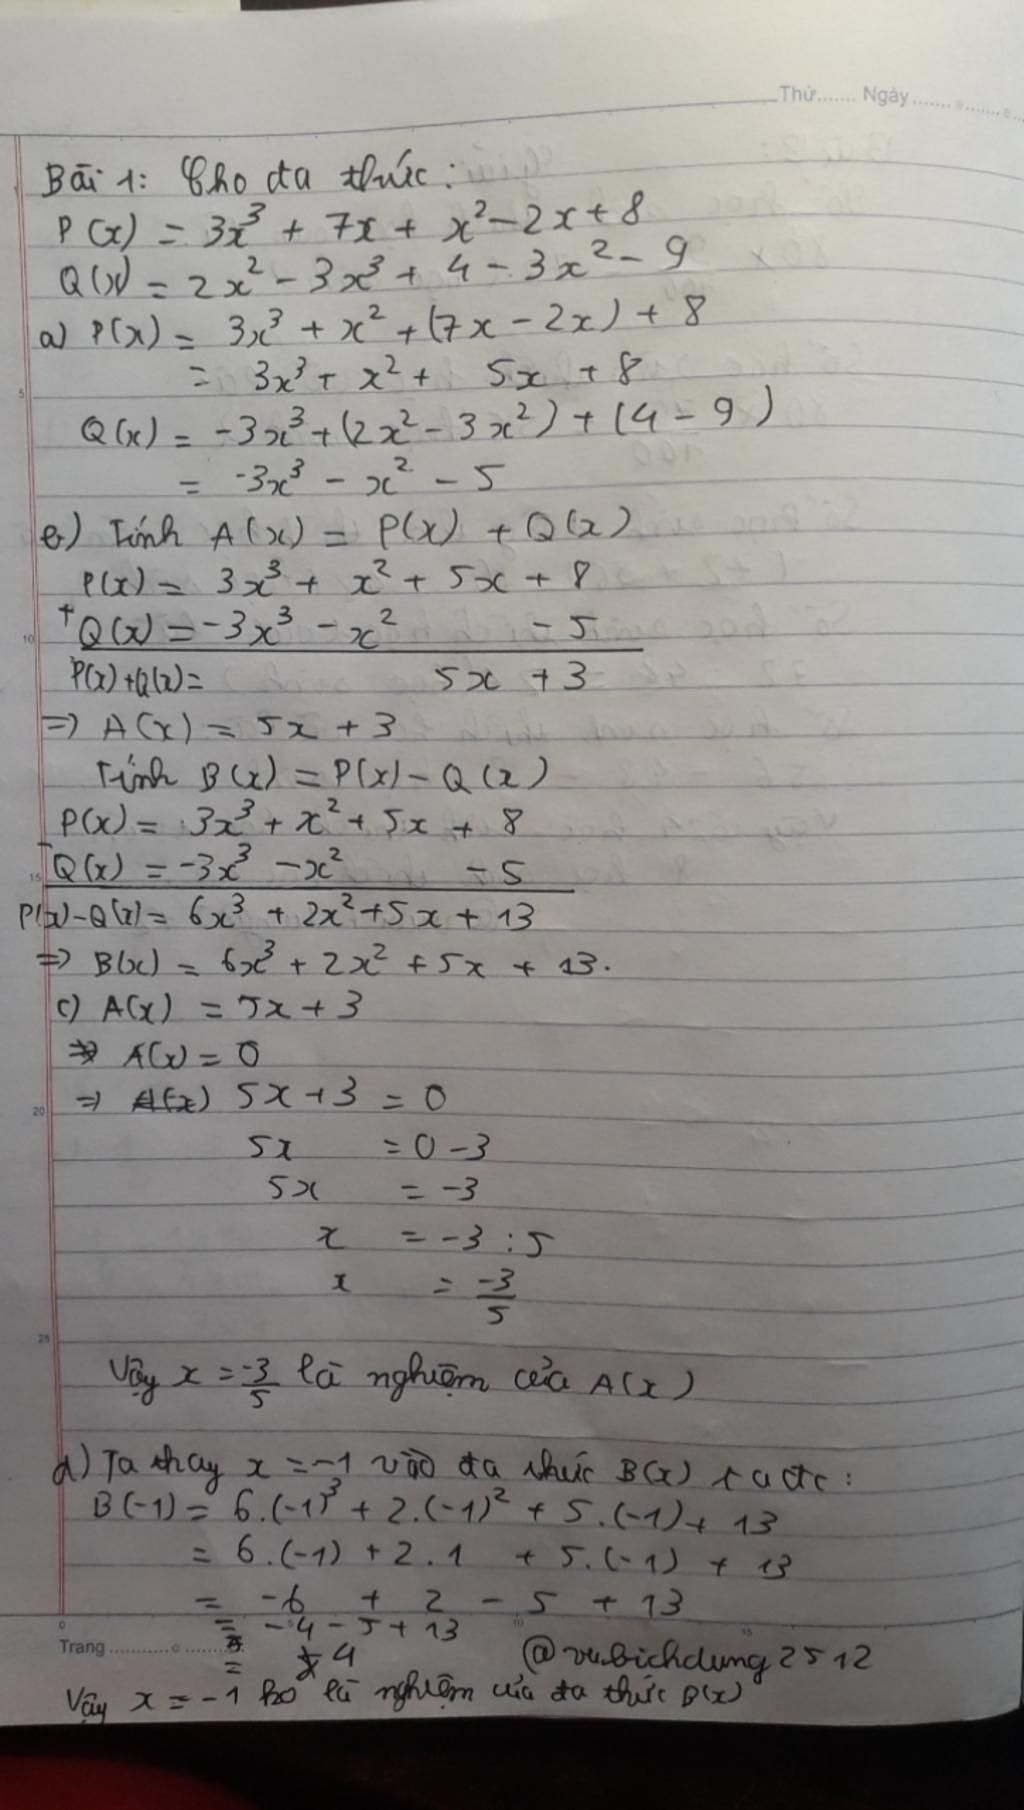 Thứ....... Ngày.......
Bài 1: Cho đa thức:
P(x) = 3x³ + 7x + x² - 2x + 8
Q(x) = 2x² - 3x³ + 4 - 3x² - 9
a) P(x) = 3x³ + x² + (7x - 2x) + 8
= 3x³ + x² + 5x + 8
5
Q(x) = -3x³ + (2x² - 3x²) + (4 - 9)
= -3x³ - x² - 5
b) Tính A(x) = P(x) + Q(x)
P(x) = 3x³ + x² + 5x + 8
10
+ Q(x) = -3x³ - x² - 5
P(x) + Q(x) = 5x + 3
=> A(x) = 5x + 3
Tính B(x) = P(x) - Q(x)
P(x) = 3x³ + x² + 5x + 8
15
- Q(x) = -3x³ - x² - 5
P(x) - Q(x) = 6x³ + 2x² + 5x + 13
=> B(x) = 6x³ + 2x² + 5x + 13.
c) A(x) = 5x + 3
=> A(x) = 0
20
=> A(x) 5x + 3 = 0
5x = 0 - 3
5x = -3
x = -3 : 5
x = -3/5
25
Vậy x = -3/5 là nghiệm của A(x)
d) Ta thay x = -1 vào đa thức B(x) ta đc:
B(-1) = 6.(-1)³ + 2.(-1)² + 5.(-1) + 13
= 6.(-1) + 2.1 + 5.(-1) + 13
= -6 + 2 - 5 + 13
= -4 - 5 + 13
Trang.......
= 4
@vubichdung2512
Vậy x = -1 ko là nghiệm của đa thức B(x)